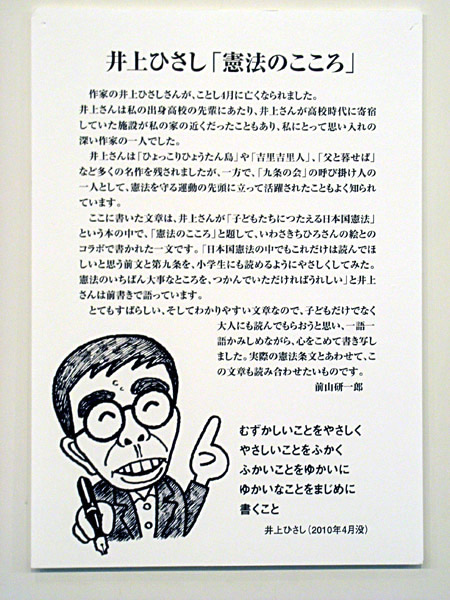 井上ひさし「憲法のこころ」
作家の井上ひさしさんが、ことし4月に亡くなられました。
井上さんは私の出身高校の先輩にあたり、井上さんが高校時代に寄宿
していた施設が私の家の近くだったこともあり、私にとって思い入れの
深い作家の一人でした。
井上さんは「ひょっこりひょうたん島」や「吉里吉里人」、「父と暮せば」
など多くの名作を残されましたが、一方で、「九条の会」の呼び掛け人の
一人として、憲法を守る運動の先頭に立って活躍されたこともよく知られ
ています。
ここに書いた文章は、井上さんが「子どもたちにつたえる日本国憲法」
という本の中で、「憲法のこころ」と題して、いわさきちひろさんの絵との
コラボで書かれた一文です。「日本国憲法の中でもこれだけは読んでほ
しいと思う前文と第九条を、小学生にも読めるようにやさしくしてみた。
憲法のいちばん大事なところを、つかんでいただければうれしい」と井上
さんは前書きで語っています。
とてもすばらしい、そしてわかりやすい文章なので、子どもだけでなく
大人にも読んでもらおうと思い、一語一
語かみしめながら、心をこめて書き写し
ました。実際の憲法条文とあわせて、こ
の文章も読み合わせたいものです。
前山研一郎
むずかしいことをやさしく
やさしいことをふかく
ふかいことをゆかいに
ゆかいなことをまじめに
書くこと
井上ひさし（2010年4月没）